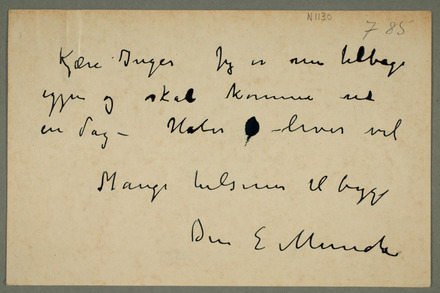 N1130
7 85
Kjære Inger Jeg er nu tilbage
igjen og skal komme ud
en dag – Haaber – lever vel
Mange hilsener til begge
Din E Munch